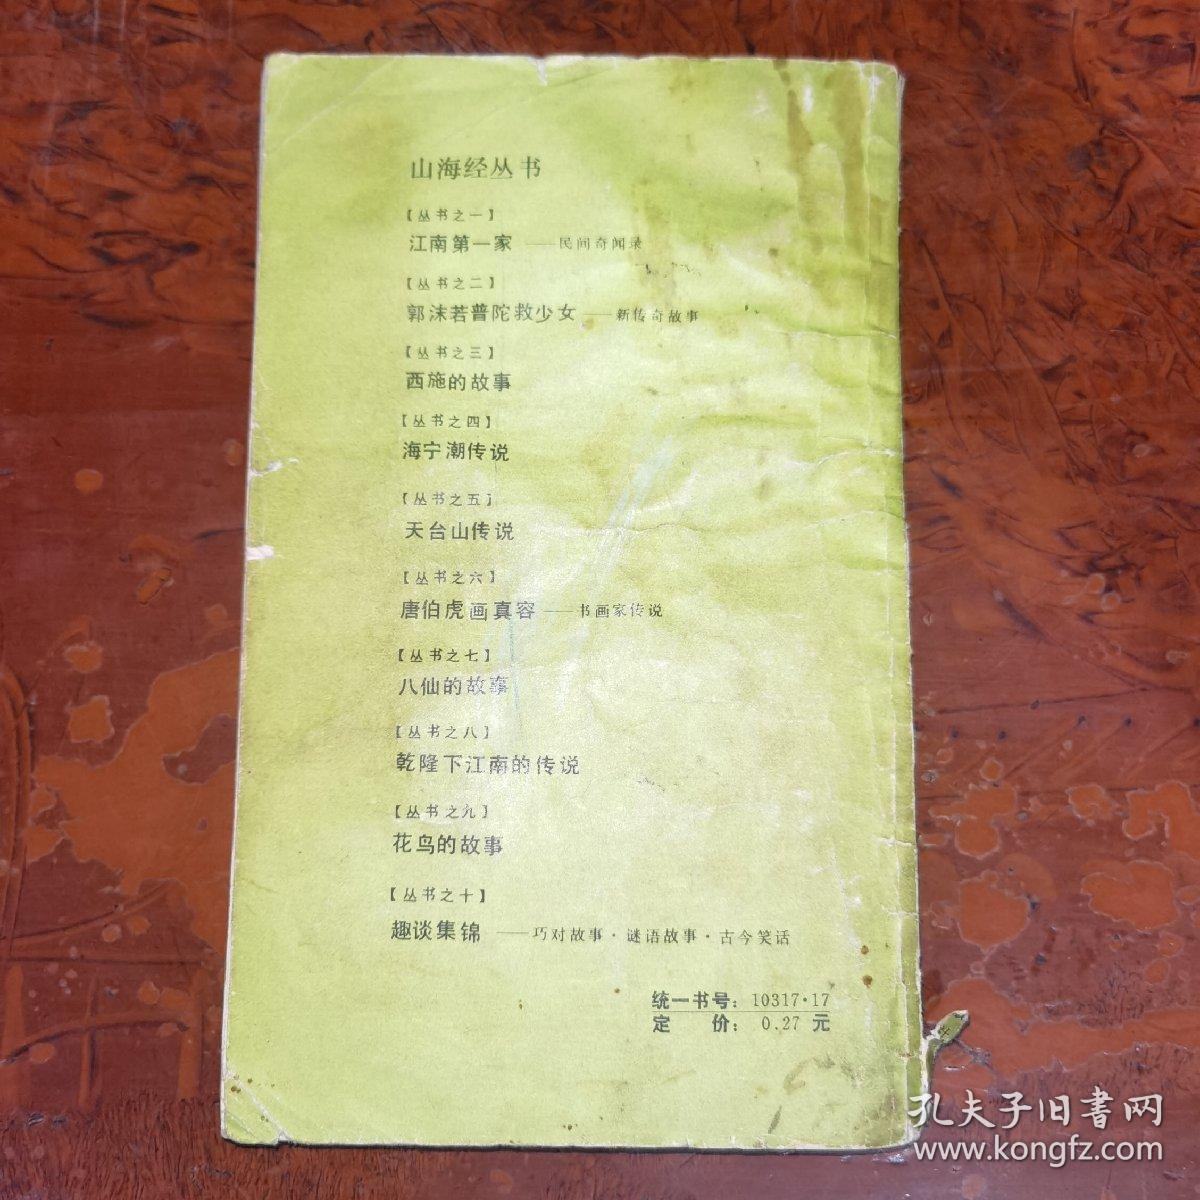 山海经丛书
【丛书之一】
江南第一家 ——民间奇闻录
【丛书之二】
郭沫若普陀救少女 ——新传奇故事
【丛书之三】
西施的故事
【丛书之四】
海宁潮传说
【丛书之五】
天台山传说
【丛书之六】
唐伯虎画真容 ——书画家传说
【丛书之七】
八仙的故事
【丛书之八】
乾隆下江南的传说
【丛书之九】
花鸟的故事
【丛书之十】
趣谈集锦 ——巧对故事·谜语故事·古今笑话
统一书号：10317·17
定 价：0.27 元
孔夫子旧書网
www.kongfz.com